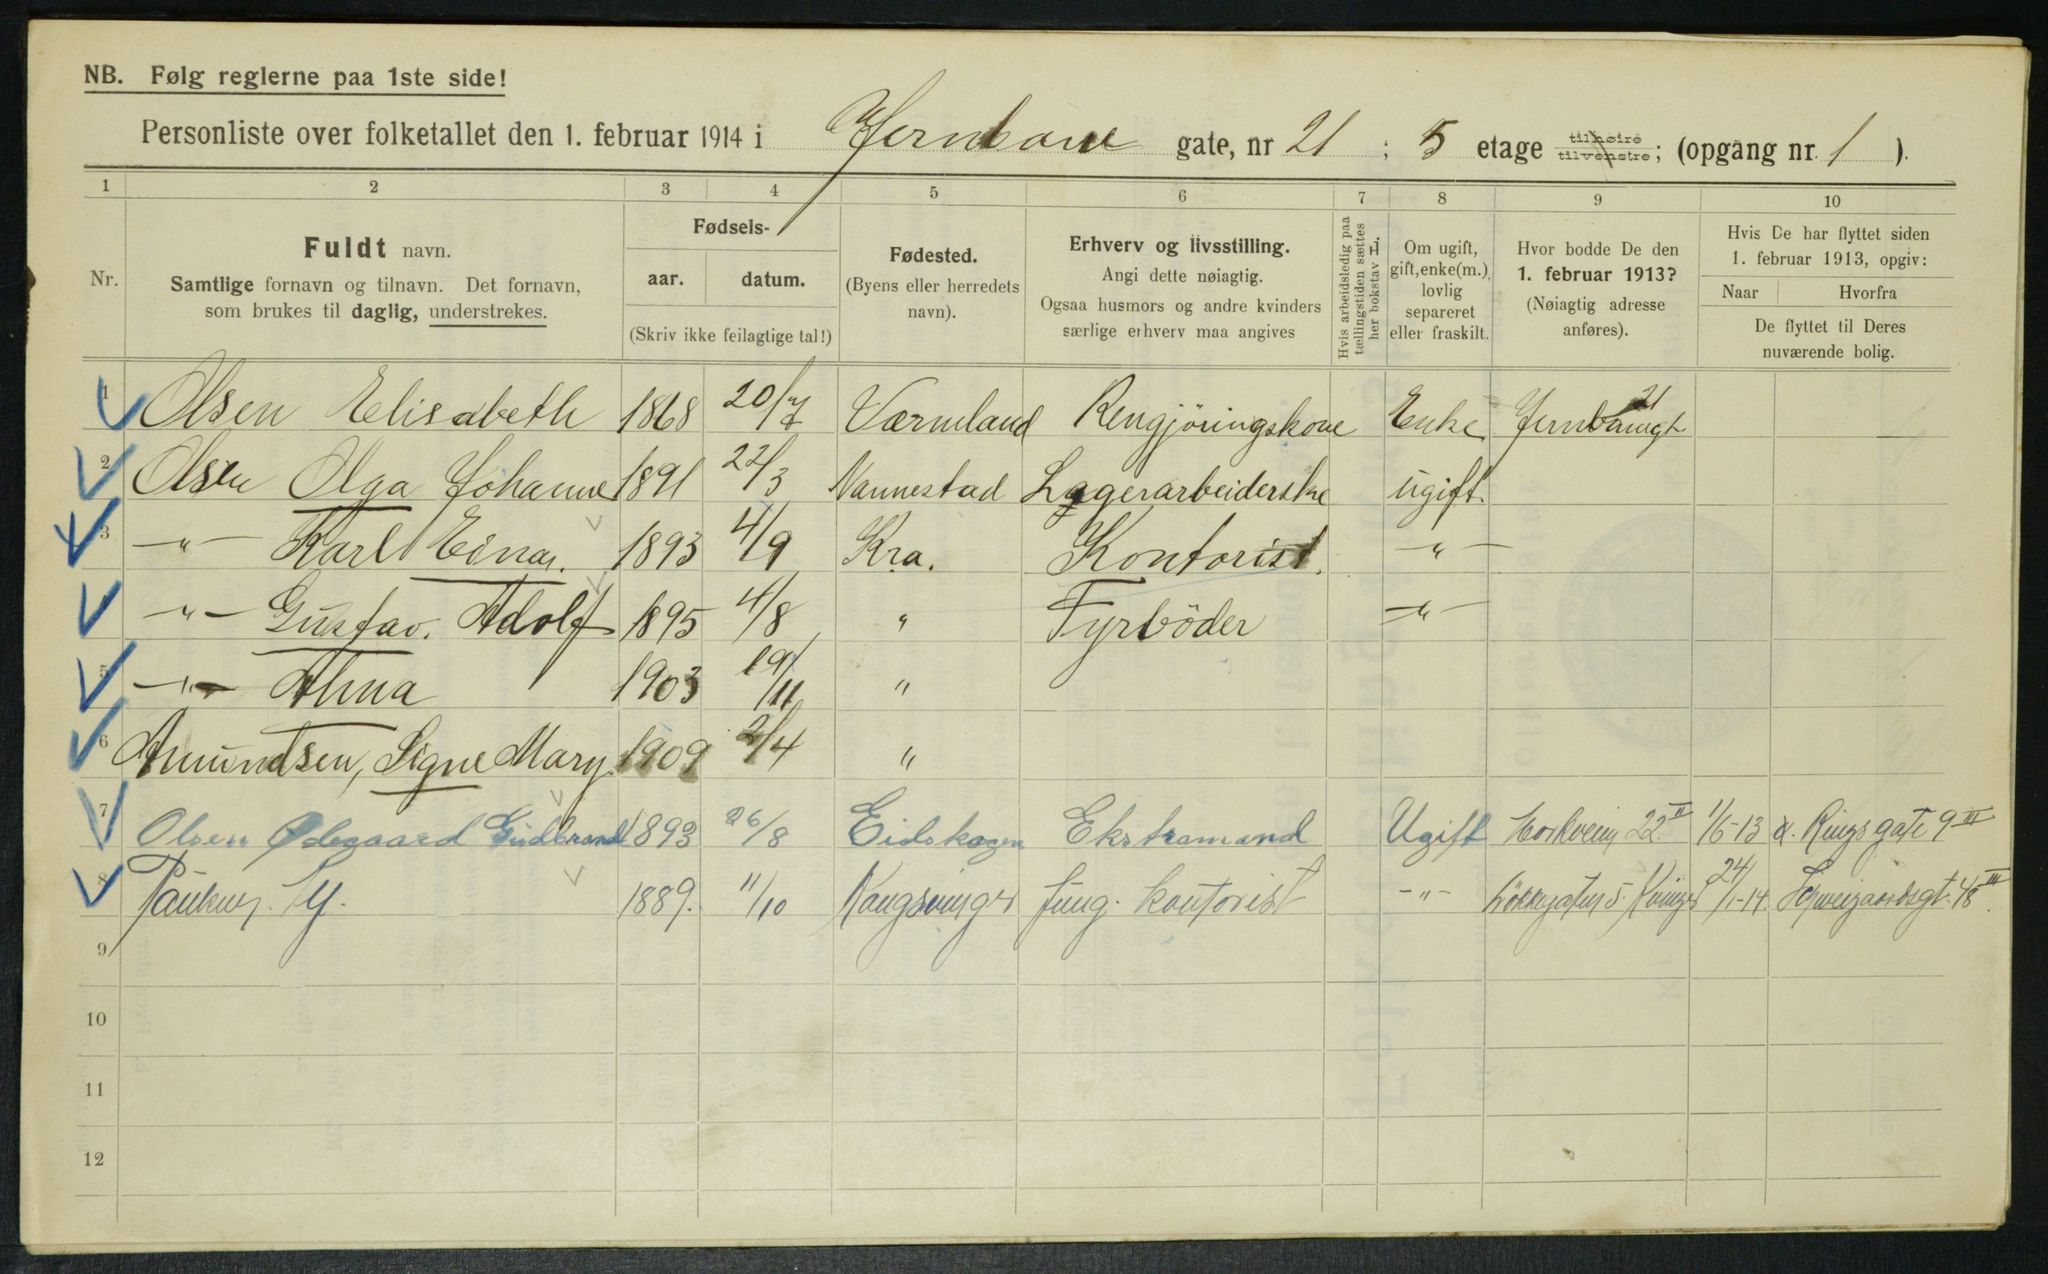 NB. Følg reglerne paa 1ste side!
Personliste over folketallet den 1. februar 1914 i Jernbane gate, nr 21 ; 5 etage tilhøire tilvenstre; (opgang nr. 1 ).
1 2 3 4 5 6 7 8 9 10
Nr.
Fuldt navn.
Samtlige fornavn og tilnavn. Det fornavn,
som brukes til daglig, understrekes.
Fødsels-
aar. datum.
(Skriv ikke feilagtige tal!)
Fødested.
(Byens eller herredets
navn).
Erhverv og livsstilling.
Angi dette nøiagtig.
Ogsaa husmors og andre kvinders
særlige erhverv maa angives
Hvis arbeidsledig paa
tællingstiden sættes
her bokstav L.
Om ugift,
gift, enke(m.),
lovlig
separeret
eller fraskilt.
Hvor bodde De den
1. februar 1913?
(Nøiagtig adresse
anføres).
Hvis De har flyttet siden
1. februar 1913, opgiv:
Naar Hvorfra
De flyttet til Deres
nuværende bolig.
1 Olsen Elisabeth 1868 20/7 Værmland Rengjöringskone Enke Jernbanegt 21
2 Olsen Olga Johanne 1891 22/3 Nannestad Lagerarbeiderske ugift.
3 -"- Karl Einar. 1893 4/9 Kra. Kontorist. -"-
4 -"- Gustav. Adolf 1895 4/8 " Fyrböder -"-
5 -"- Alma 1903 19/11 "
6 Amundsen, Signe Mary. 1909 2/4 "
7 Olsen Ødegaard Gudbrand 1893 26/8 Eidskogen Ekstramand Ugift 22 II 1/6-13 Ringsgate 9 III
8 1889. 11/10 Kongsvinger fung. kontorist -"- 5 24/1-14. Schweigaardsgt. 48 III
9
10
11
12